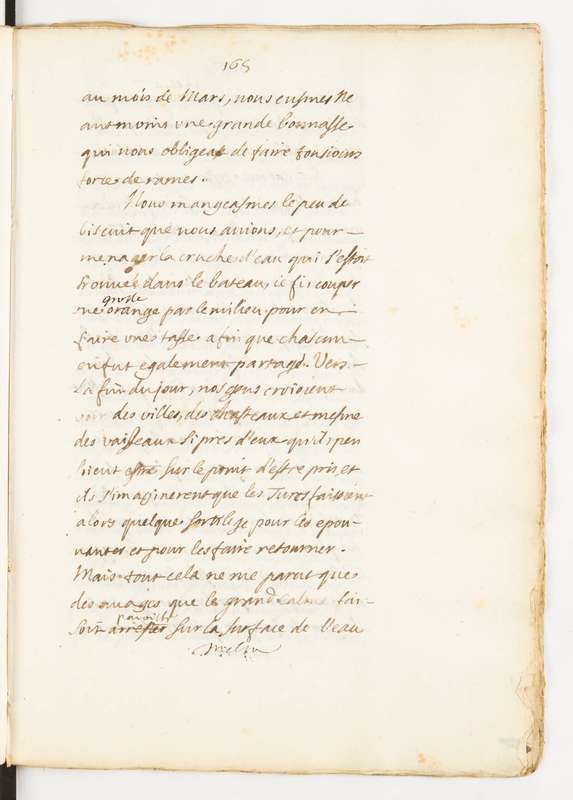 165
au mois de Mars, nous eusmes Ne
antmoins vne grande bonnasse
qui nous obligeat de faire tousiours
force de rames.
Nous mangeasmes le peu de
biscuit que nous auions, et pour
menager la cruche d'eau qui s'estoit
trouuée dans le bateau, ie fis couper
vne grosse orange par le milieu pour en
faire vne tasse afin que chascun
en fut egalement partagé. Vers
la fin du jour, nos gens croioient
voir des villes, des chasteaux et mesme
des vaisseaux si pres d'eux qu'ils pen
soient estre sur le point d'estre pris, et
ils s'imaginerent que les Turcs faisoient
alors quelque sortilege pour les epou-
uanter et pour les faire retourner.
Mais tout cela ne me parut que
des nuages que le grand calme fai-
soit paroistre arrester sur la surface de l'eau